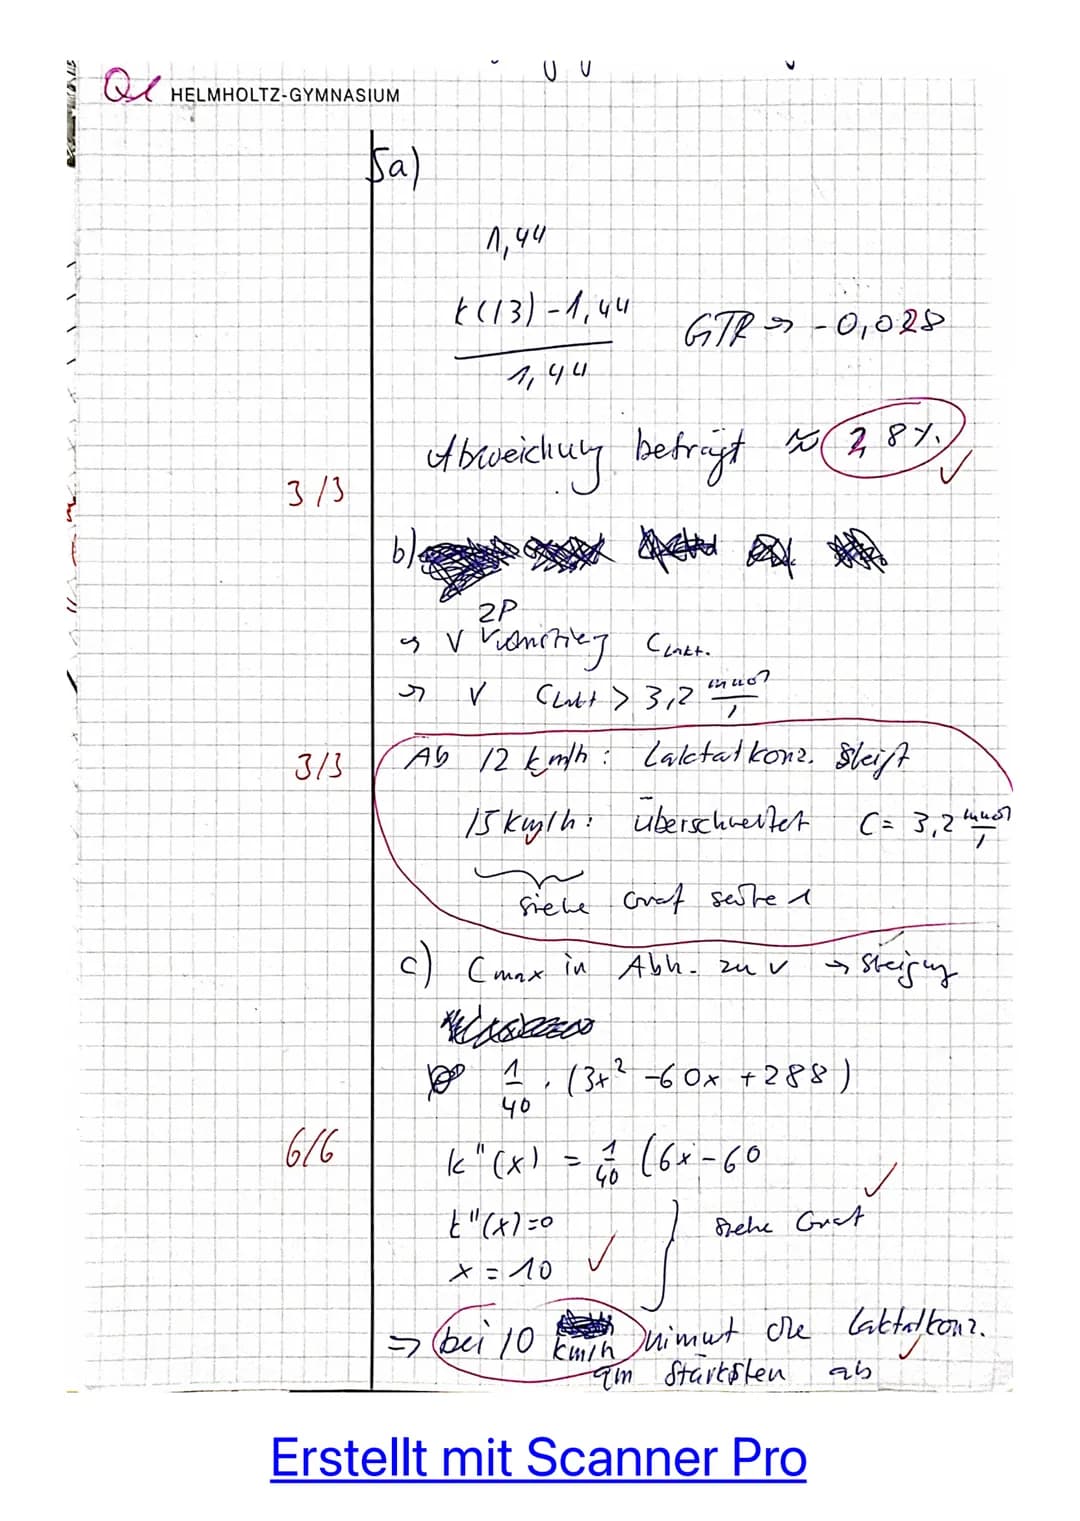 Q1 HELMHOLTZ-GYMNASIUM
5a)
1,44
k(13) - 1,44
1,44
GTR → -0,028
Abweichung beträgt ≈ 2,8%.
3/3
b)
2P
→ V Vramstieg CLakt.
→ V CLakt > 3,2 mmol/l
3/3
Ab 12 km/h: Laktatkonz. steigt
15 km/h: überschreitet C = 3,2 mmol/l
siehe Graf seite 1
c) Cmax in Abh. zu v → Steigung
1/40 · (3x² - 60x + 288)
6/6
k"(x) = 1/40 (6x - 60
k"(x) = 0
x = 10
siehe Graf
⇒ bei 10 km/h nimmt die Laktatkonz.
am stärksten ab
Erstellt mit Scanner Pro